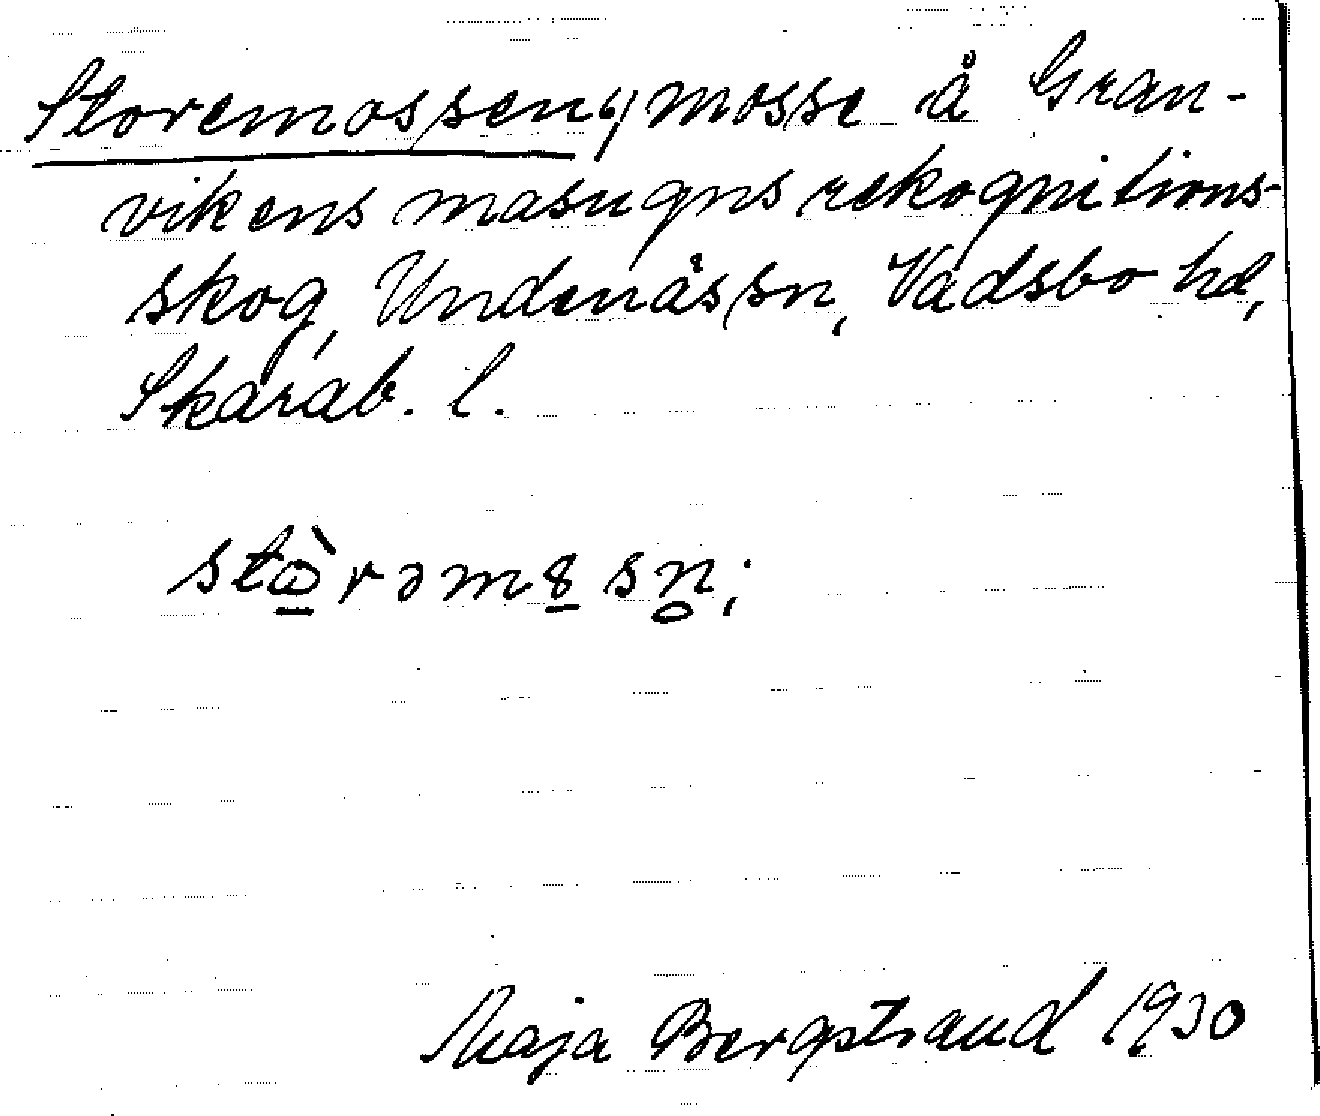 Storemossen, mosse å Gran-
vikens masugns rekognitions-
skog, Undenäs sn, Vadsbo hd,
Skarab. l.
Maja Bergstrand 1930